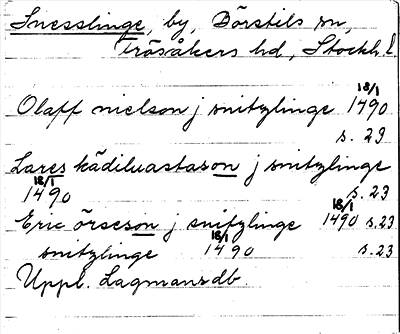 Snesslinge, by, Börstils sn,
Frösåkers hd, Stockh. l.
Olaff nielson j snitzlinge 18/1 1490
s. 23
Lares kädiluastason j snitzlinge
18/1 1490 s. 23
Eric örseson j snitzlinge 18/1 1490 s. 23
snitzlinge 18/1 1490 s. 23
Uppl. Lagmansdb.